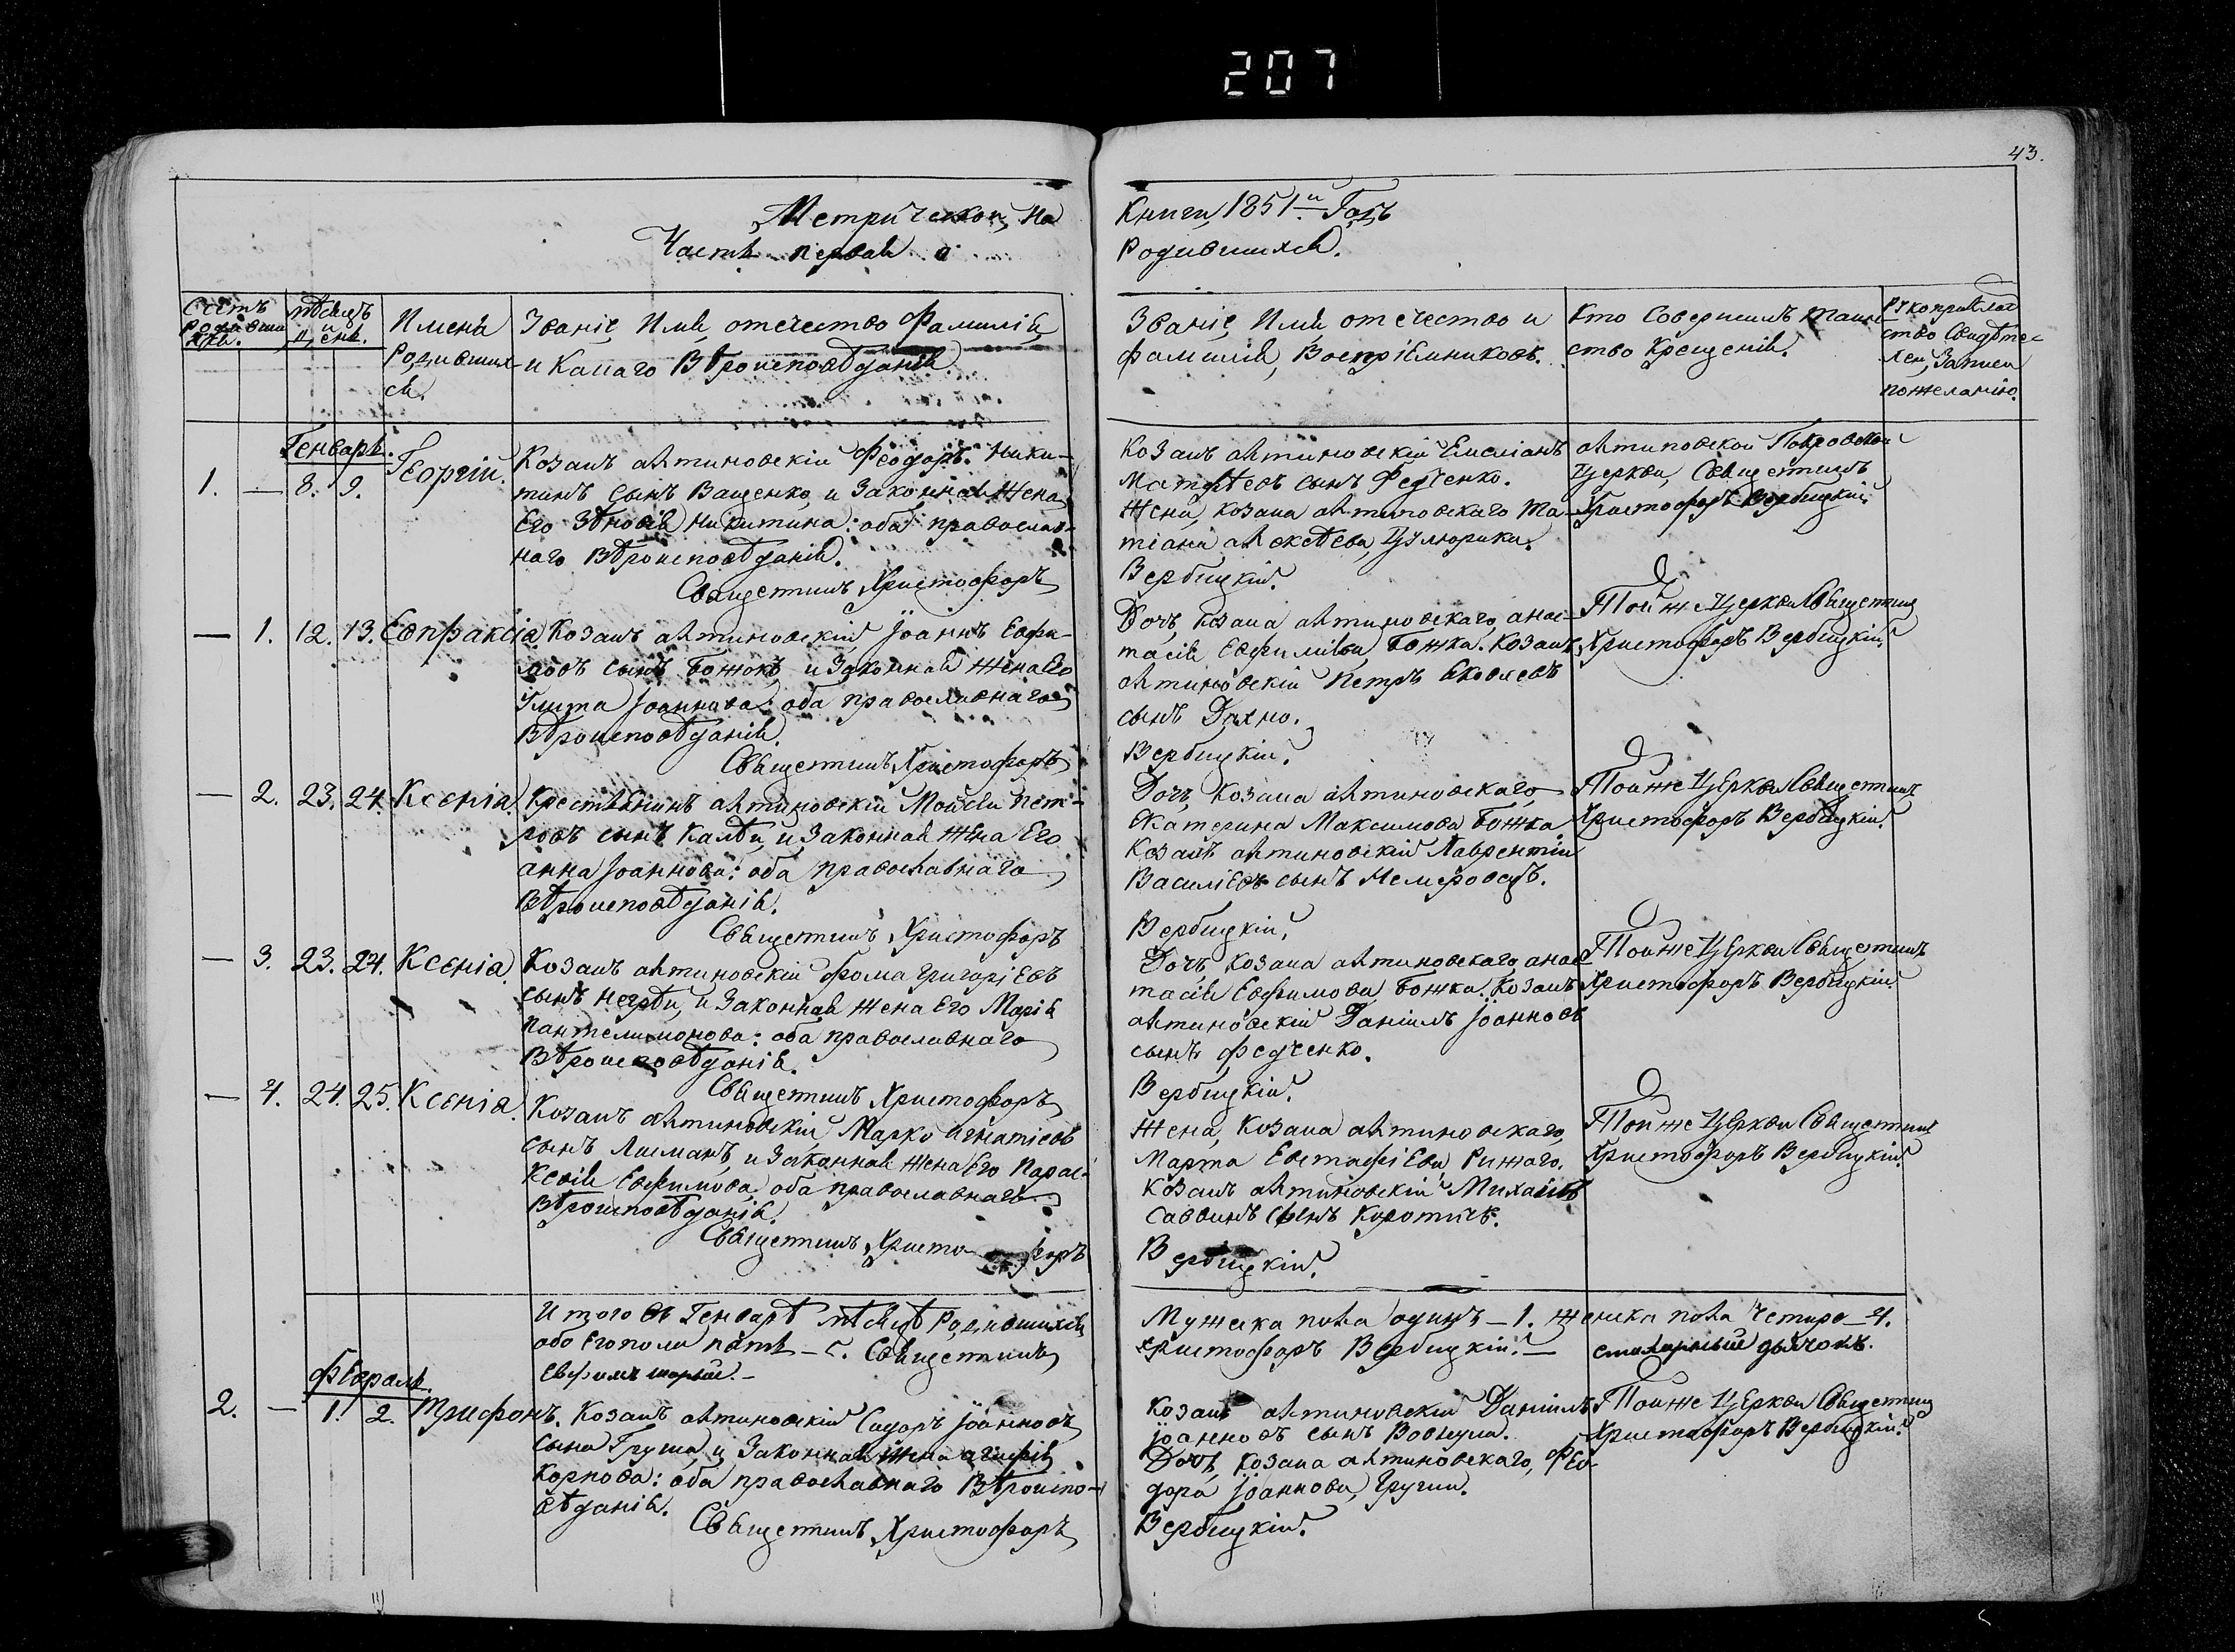 207
43.
Метрической на
Книги, 1851й Годъ
Часть первая о
Родившихся.
Счетъ Родившихся.
мѣсяцъ и день.
Имена Родившихся.
Званіе, Имя, отечество Фамилія,
и Какаго Вѣроисповѣданія.
Званіе, Имя, отечество и
фамилія, Воспріемниковъ.
Кто Совершилъ таин
ство Крещенія.
Рукоприклад
ство Свидѣте-
лей, Записи
пожеланію.
Генварь.
1. — 8. 9. Георгій.
Козакъ Антиповскій Феодоръ Ники-
тинъ сынъ Ващенко, и Законная Жена
Его Зѣновія Никитина: оба православ-
наго Вѣроисповѣданія.
Священникъ Христофоръ
Козакъ Антиповскій Емеліанъ
Матфѣевъ сынъ Федченко.
Жена, Козака Антиповскаго Та-
тіана Алексѣева, Цулюрика.
Вербицкій.
Антиповской Покровской
Церкви, Священникъ
Христофоръ Вербицкій.
— 1. 12. 13. Евпраксіа
Козакъ Антиповскій Іоаннъ Евфи-
мовъ сынъ Божокъ, и Законная Жена Его
Улита Іоаннова: оба православнаго
Вѣроисповѣданія.
Священникъ Христофоръ
Дочь, Козака Антиповскаго, анас-
тасія Евфимова, Божка. Козакъ
Антиповскій Петръ Яковлевъ
сынъ Дахно.
Вербицкій.
Той же Церкви Священник
Христофоръ Вербицкій.
— 2. 23. 24. Ксенія.
Крестянинъ Антиповскій Мойсей Пет-
ровъ сынъ Калѣй, и Законная Жена Его
анна Іоаннова: оба православнаго
Вѣроисповѣданія.
Священникъ Христофоръ
Дочь, Козака Антиповскаго,
Екатерина Максимова Божка
Козакъ Антиповскій Лаврентій
Василіевъ сынъ Немеровецъ.
Вербицкій.
Той же Церкви Священникъ
Христофоръ Вербицкій.
— 3. 23. 24. Ксенія.
Козакъ Антиповскій Фома Григоріевъ
сынъ Негрѣй, и Законная Жена Его Марія
Пантелимонова: оба православнаго
Вѣроисповѣданія.
Священникъ Христофоръ
Дочь Козака Антиповскаго, анас
тасія Евфимова, Божка. Козакъ
Антиповскій Даніилъ Іоанновъ
сынъ Федченко.
Вербицкій.
Той же Церкви Священникъ
Христофоръ Вербицкій
— 4. 24. 25. Ксенія.
Козакъ Антиповскій, Марко Игнатіевъ
сынъ Лисманъ, и Законная Жена Его Парас-
Кевія Евфимова, оба православнаго
Вѣроисповѣданія.
Священникъ, Христо форъ
Жена, Козака Антиповскаго,
Марта Евстафіева, Рижаго.
Козакъ Антиповскій Михаилъ
Саввинъ сынъ Коротичъ.
Вербицкій.
Той же Церкви Священник
Христофоръ Вербицкій.
И того въ Генварѣ мѣсяцѣ Родившихся
обоего пола пять – 5. Священникъ
Мужска пола одинъ – 1. женска пола Четире – 4.
Христофоръ Вербицкій. —
стихарный дьячокъ.
Февраль.
2. — 1. 2. Трифонъ.
Козакъ Антиповскій Сидоръ Іоанновъ
сынъ Груша, и Законная Жена агафія
Карпова: оба православнаго Вѣроиспо-
вѣданія.
Священникъ Христофоръ
Козакъ Антиповскій Даніилъ
Іоанновъ сынъ Вовкула.
Дочь, Козака Антиповскаго, Фео-
дора Іоаннова, Груши.
Вербицкій.
Той же Церкви Священник
Христофоръ Вербицкій.